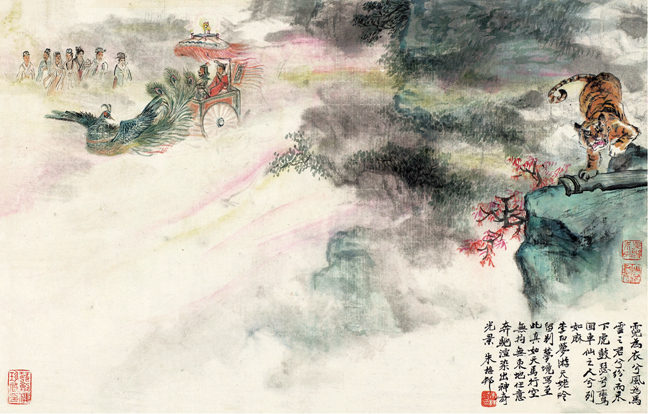 霓為衣兮風為馬
雲之君兮紛而來
下虎鼓瑟兮鸞
回車仙之人兮列
如麻
李白夢游天姥吟
留別夢境寫至
此真如天馬行空
無拘無束地任意
奔馳渲染出神奇
光景 朱梅邨